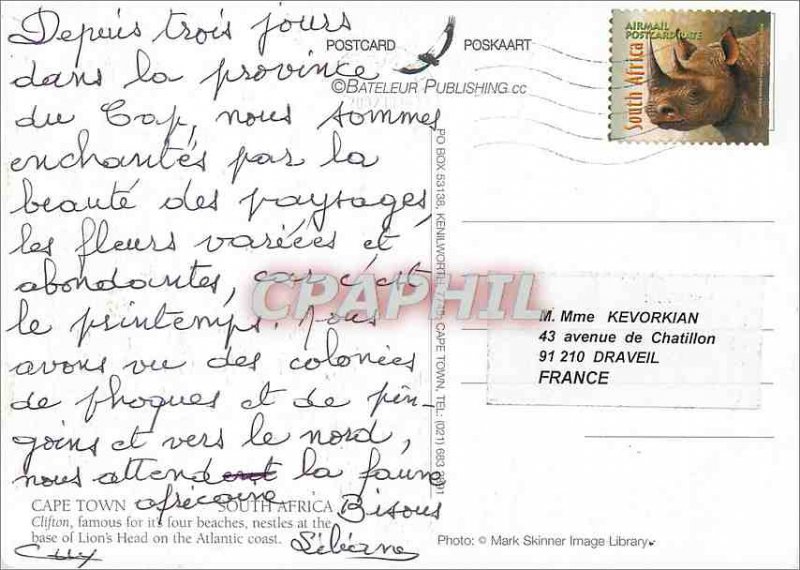 Depuis trois jours
dans la province
du Cap, nous sommes
enchantés par la
beauté des paysages,
les fleurs variées et
abondantes, car c'est
le printemps. Nous
avons vu des colonies
de phoques et de pin-
goins et vers le nord,
nous attend la faune
africaine Bisous
Guy Liliane
POSTCARD POSKAART
©BATELEUR PUBLISHING CC
PO BOX 53138, KENILWORTH, 7745, CAPE TOWN, TEL: (021) 683
AIRMAIL
POSTCARD RATE
South Africa
CPAPHIL
M. Mme KEVORKIAN
43 avenue de Chatillon
91 210 DRAVEIL
FRANCE
CAPE TOWN SOUTH AFRICA
Clifton, famous for its four beaches, nestles at the
base of Lion's Head on the Atlantic coast.
Photo: © Mark Skinner Image Library